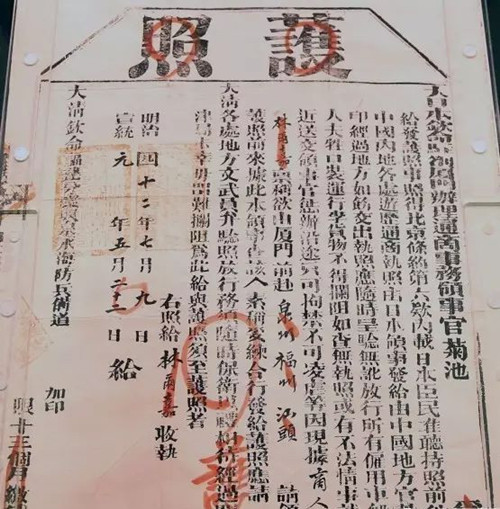 護照
大日本欽命駐劄廈門辦理通商事務領事官菊池
給發護照事照得北京條約第六欵內載日本臣民准聽持照前
中國內地各處遊歷通商執照由日本領事發給由中國地方官
印經過地方如飭交出執照應隨時呈驗無訛放行所有僱用車船
人夫牲口裝運行李貨物不得攔阻如查無執照或有不法情事就
近送交領事官懲辦沿途只可拘禁不可凌虐等因現據商人
林爾嘉稟稱欲由厦門前赴泉州福州汕頭 請領
護照前來據此本領事查該人素稱妥練合行發給護照應請
大清各處地方文武員弁驗照放行務須隨時保衛以禮相待經過
津局卡幸毋留難攔阻爲此給與護照須至護照者
右照給林爾嘉收執
明治四十二年七月九日
宣統元年五月二十二日給
大清欽命福建分巡興泉永海防兵備道
加印
限十三個月繳